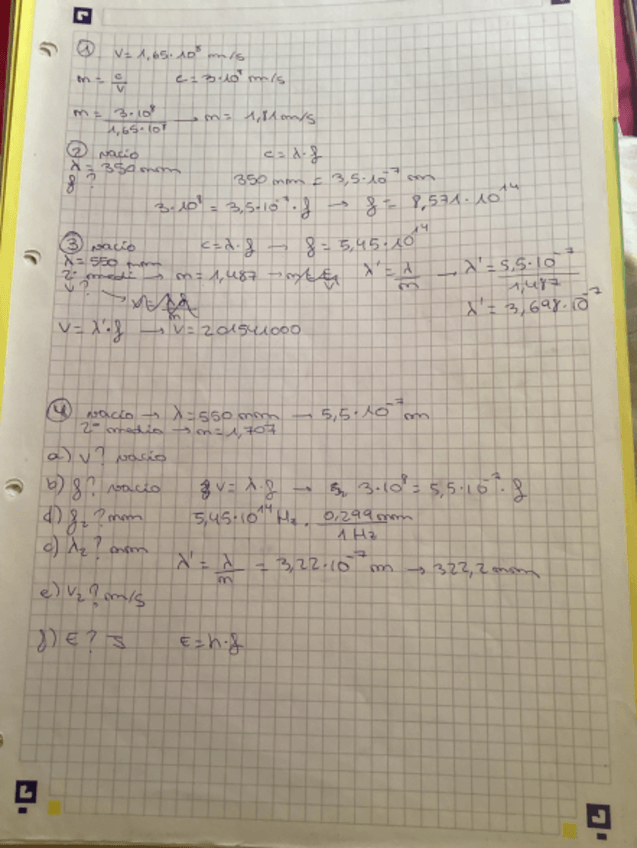 ① V = 1,65·10⁸ m/s
n = c/v c = 3·10⁸ m/s
n = 3·10⁸ / 1,65·10⁸ → n = 1,81 m/s
② vacío c = λ·f
λ = 350 nm 350 nm = 3,5·10⁻⁷ m
f?
3·10⁸ = 3,5·10⁻⁷·f → f = 8,571·10¹⁴
③ vacío c = λ·f → f = 5,45·10¹⁴
λ = 550 nm
2º medio → n = 1,487 λ' = λ/n → λ' = 5,5·10⁻⁷ / 1,487
v? λ' = 3,698·10⁻⁷
V = λ'·f → V = 201541000
④ vacío → λ = 550 nm → 5,5·10⁻⁷ m
2º medio → n = 1,707
a) V? vacío
b) f? vacío V = λ·f → 3·10⁸ = 5,5·10⁻⁷·f
d) f₂? nm 5,45·10¹⁴ Hz · 0,299 nm / 1 Hz
c) λ₂? nm λ' = λ/n = 3,22·10⁻⁷ m → 322,2 nm
e) V₂? m/s
f) E? J E = h·f